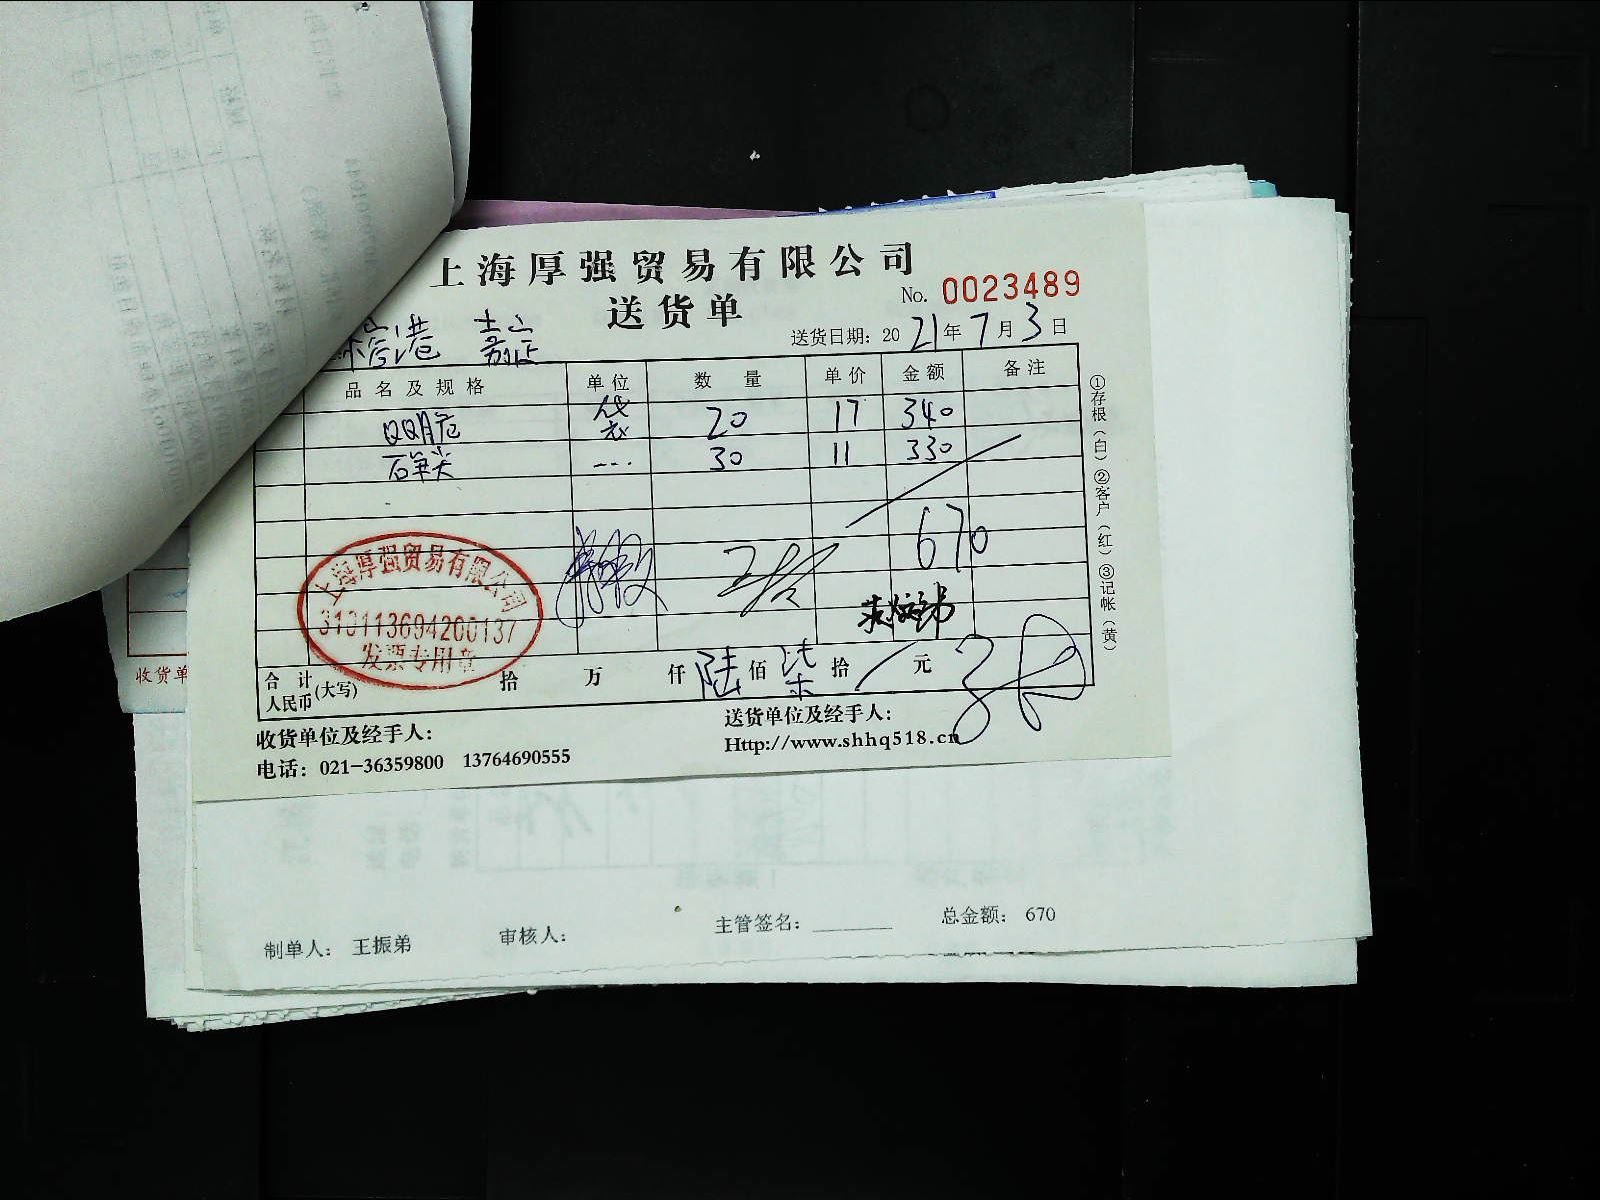 上海厚强贸易有限公司
送货单
No. 0023489
港 嘉定
送货日期：2021年7月3日
品名及规格 单位 数量 单价 金额 备注
袋 20 17 340
石笋尖 30 11 330
670
上海厚强贸易有限公司
310113694200137
发票专用章
合计人民币(大写) 拾 万 仟 陆 佰 柒 拾 元
收货单位及经手人： 送货单位及经手人：
电话：021-36359800 13764690555 Http://www.shhq518.cn
①存根(白) ②客户(红) ③记帐(黄)
收货单
制单人： 王振弟 审核人： 主管签名：________ 总金额： 670